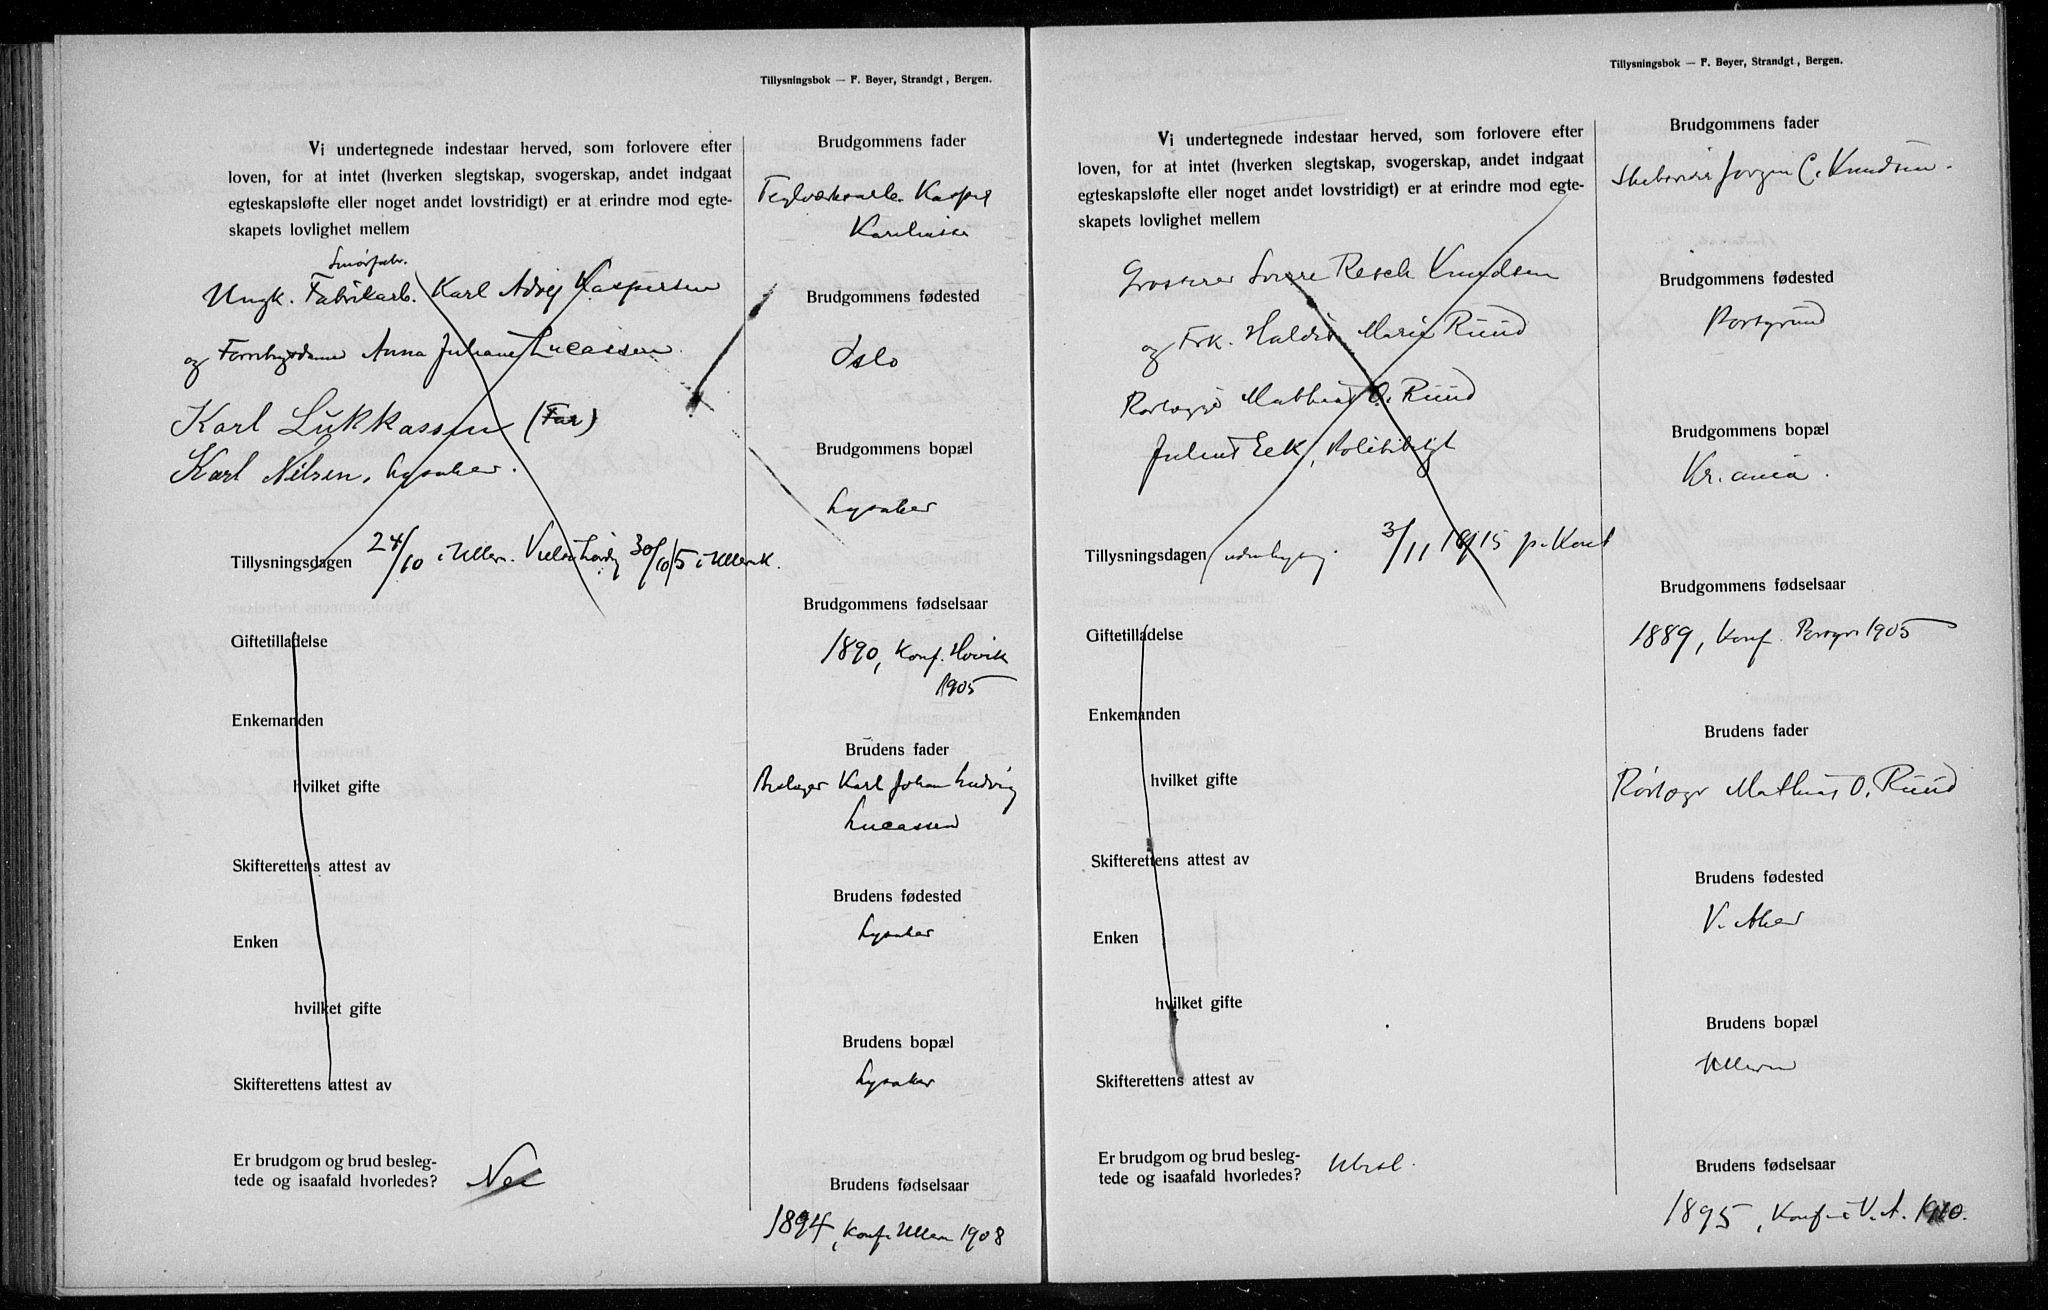 Tillysningsbok — F. Beyer, Strandgt, Bergen.
Vi undertegnede indestaar herved, som forlovere efter
loven, for at intet (hverken slegtskap, svogerskap, andet indgaat
egteskapsløfte eller noget andet lovstridigt) er at erindre mod egte-
skapets lovlighet mellem
Smørfabr.
Ungk. Fabrikarb. Karl Adolf Kaspersen
og Anna Juliane Lucassen
Karl Lukkassen (Far)
Karl Nilsen, Lysaker.
Tillysningsdagen 24/10 i Ullern. 30/10 15 i Ullern k.
Giftetilladelse
Enkemanden
hvilket gifte
Skifterettens attest av
Enken
hvilket gifte
Skifterettens attest av
Er brudgom og brud besleg-
tede og isaafald hvorledes? Nei
Brudgommens fader
Teglverksarb. Kasper
Brudgommens fødested
Oslo
Brudgommens bopæl
Lysaker
Brudgommens fødselsaar
1890, Konf. Høvik
1905
Brudens fader
Karl Johan Ludvig
Lucassen
Brudens fødested
Lysaker
Brudens bopæl
Lysaker
Brudens fødselsaar
1894, Konf. Ullern 1908
Tillysningsbok — F. Beyer, Strandgt, Bergen.
Vi undertegnede indestaar herved, som forlovere efter
loven, for at intet (hverken slegtskap, svogerskap, andet indgaat
egteskapsløfte eller noget andet lovstridigt) er at erindre mod egte-
skapets lovlighet mellem
Grosserer Sverre Resch Knudsen
og Frk. Haldis Marie Ruud
Rørlægger Mathias O. Ruud
Julius Eek, Politibetjt
Tillysningsdagen 3/11 1915 p. Kont
Giftetilladelse
Enkemanden
hvilket gifte
Skifterettens attest av
Enken
hvilket gifte
Skifterettens attest av
Er brudgom og brud besleg-
tede og isaafald hvorledes? Ubesl.
Brudgommens fader
Skibsreder Jørgen C. Knudsen.
Brudgommens fødested
Porsgrund
Brudgommens bopæl
Kr.ania.
Brudgommens fødselsaar
1889, Konf. Porsgr 1905
Brudens fader
Rørlægr Mathias O. Ruud
Brudens fødested
V. Aker
Brudens bopæl
Ullern
Brudens fødselsaar
1895, Konf. i V. A. 1910.